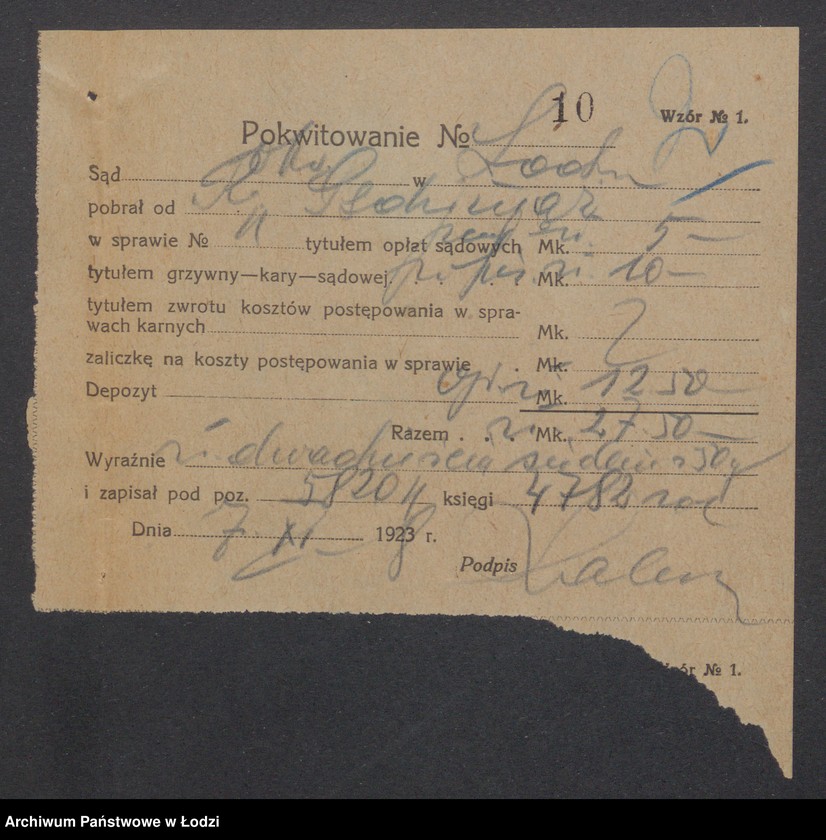 10
Wzór № 1.
Pokwitowanie №
Sąd Okr. w Łodzi
pobrał od
w sprawie № tytułem opłat sądowych Mk. 5 —
tytułem grzywny—kary—sądowej. . . . . Mk. 10 —
tytułem zwrotu kosztów postępowania w spra-
wach karnych Mk.
zaliczkę na koszty postępowania w sprawie . Mk.
Depozyt Mk. 12 50 —
Razem . . . Mk. 27.50 —
Wyraźnie zł dwadzieścia siedem
i zapisał pod poz. 5820 księgi 4782
Dnia 7 XI 1923 r. 8
Podpis
Wzór № 1.
Archiwum Państwowe w Łodzi